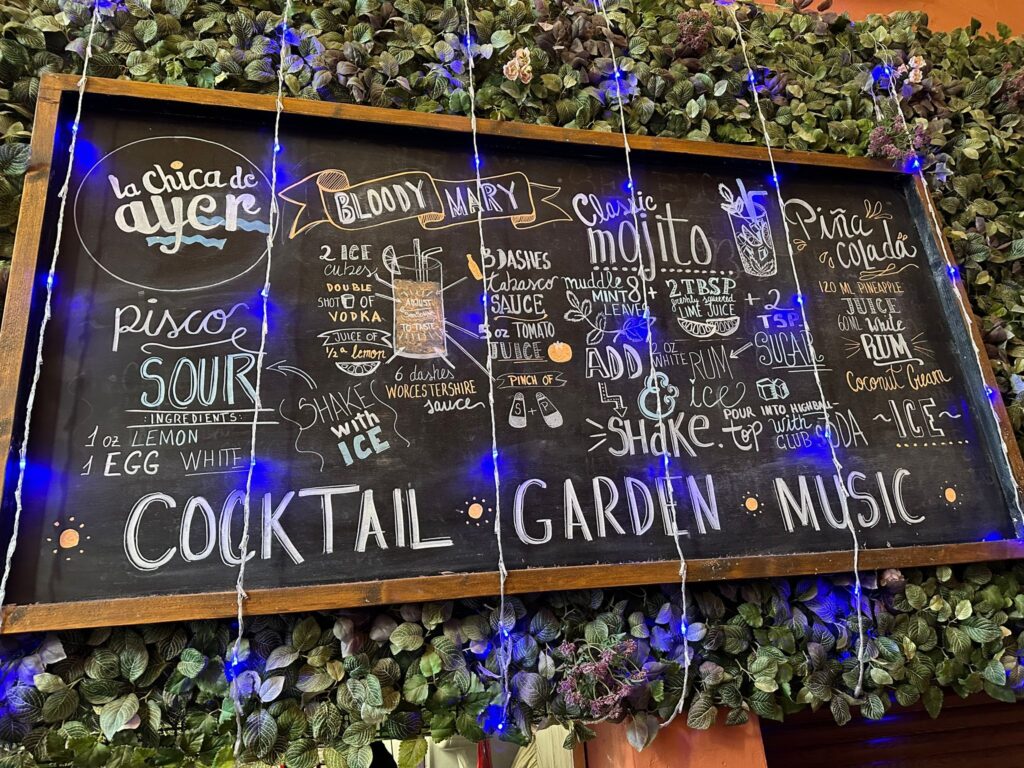 La Chica de
ayer
Pisco
SOUR
INGREDIENTS:
1 oz LEMON
1 EGG WHITE
BLOODY MARY
2 ICE
cubes
DOUBLE
SHOT OF
VODKA
JUICE OF
1/2 a lemon
SHAKE
with
ICE
ADJUST
TO TASTE
6 dashes
WORCESTERSHIRE
sauce
3 DASHES
tabasco
SAUCE
5 oz TOMATO
JUICE
PINCH OF
S +
Classic
mojito
muddle 8
MINT
LEAVES
+ 2 TBSP
freshly squeezed
LIME JUICE
+ 2
TSP
SUGAR
ADD 2 oz WHITE RUM
& ice
SHAKE.
POUR INTO HIGHBALL
top with
CLUB SODA
Piña
Colada
120 ML PINEAPPLE
JUICE
60ML white
RUM
Coconut Cream
~ICE~
COCKTAIL • GARDEN • MUSIC •